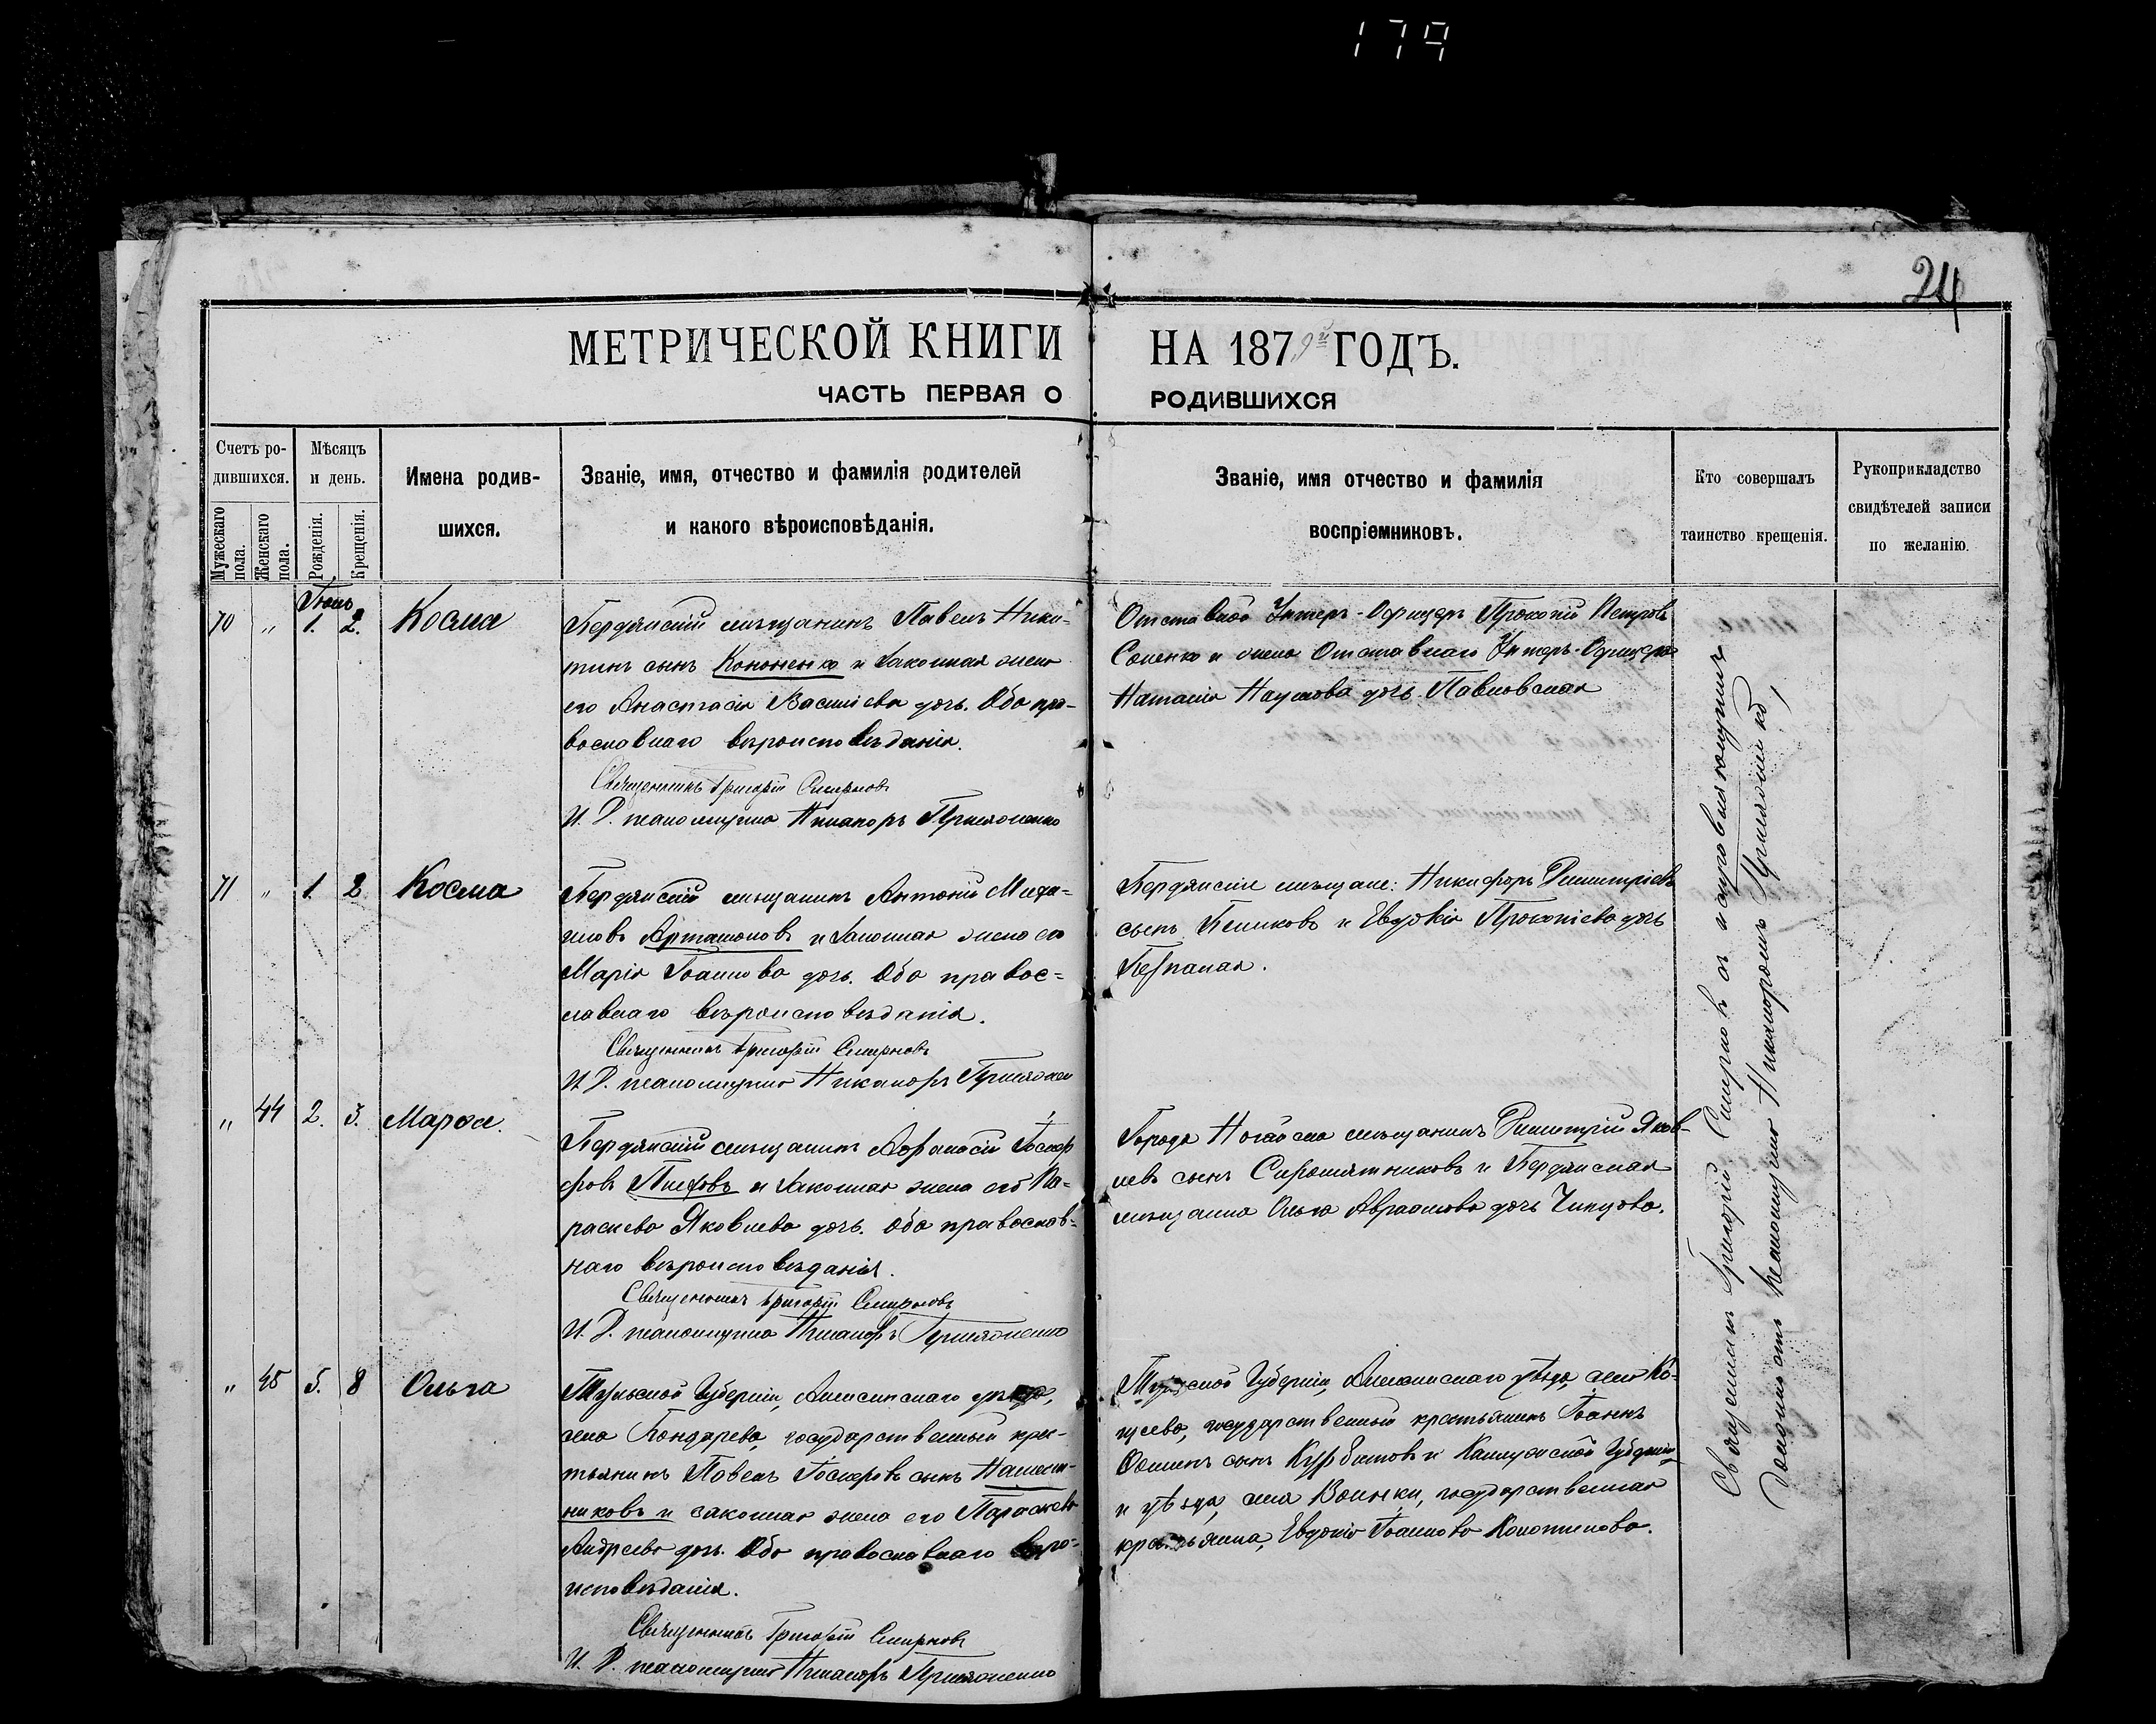 179
24
МЕТРИЧЕСКОЙ КНИГИ НА 1879й ГОДЪ.
ЧАСТЬ ПЕРВАЯ О РОДИВШИХСЯ
Счетъ ро-
дившихся.
Мужескаго
пола.
Женскаго
пола.
Мѣсяцъ
и день.
Рожденія.
Крещенія.
Имена родив-
шихся.
Званіе, имя, отчество и фамилія родителей
и какого вѣроисповѣданія.
Званіе, имя отчество и фамилія
воспріемниковъ.
Кто совершалъ
таинство крещенія.
Рукоприкладство
свидѣтелей записи
по желанію.
70 " 1. 2. Косма
Бердянскій мѣщанинъ Павелъ Ники-
тинъ сынъ Кононенко и законная жена
его Анастасія Василіева дочь. Оба пра-
вославнаго вѣроисповѣданія.
Священникъ Григорій Смирновъ
И. Д. псаломщика Никаноръ
Отставной Унтеръ-Офицеръ Прокопій Петровъ
и жена Отставнаго Унтеръ-Офицера
Наталія Наумова дочь Павловская
71 " 1. 2 Косма
Бердянскій мѣщанинъ Антоній Миха-
иловъ Артамоновъ и законная жена его
Марія Іоаннова дочь. Оба правос-
лавнаго вѣроисповѣданія.
Священникъ Григорій Смирновъ
И. Д. псаломщика Никаноръ
Бердянскіе мѣщане: Никифоръ Димитріевъ
сынъ и Евдокія Прокопіева дочь
" 44 2. 3. Марѳа.
Бердянскій мѣщанинъ Аѳанасій
и законная жена его Па-
раскева Яковлева дочь. Оба православ-
наго вѣроисповѣданія.
Священникъ Григорій Смирновъ
И. Д. псаломщика Никаноръ
Города Ногайска мѣщанинъ Димитрій Яков-
левъ сынъ Сыромятниковъ и Бердянская
мѣщанка Ольга Авраамова дочь
" 45 5. 8 Ольга
Тульской Губерніи, Алексинскаго уѣзда,
села Бондарева, государственный крес-
тьянинъ Павелъ сынъ
и законная жена его Параскева
Андреева дочь. Оба православнаго вѣро-
исповѣданія.
Священникъ Григорій Смирновъ
И. Д. псаломщика Никаноръ
Тульской Губерніи, Алексинскаго уѣзда, села
государственный крестьянинъ Іоаннъ
сынъ Курбатовъ и Калужской Губерніи
и уѣзда, села государственная
крестьянка, Евдокія Іоаннова
Священникъ Григорій Смирновъ съ исправляющимъ
должность псаломщика Никаноромъ